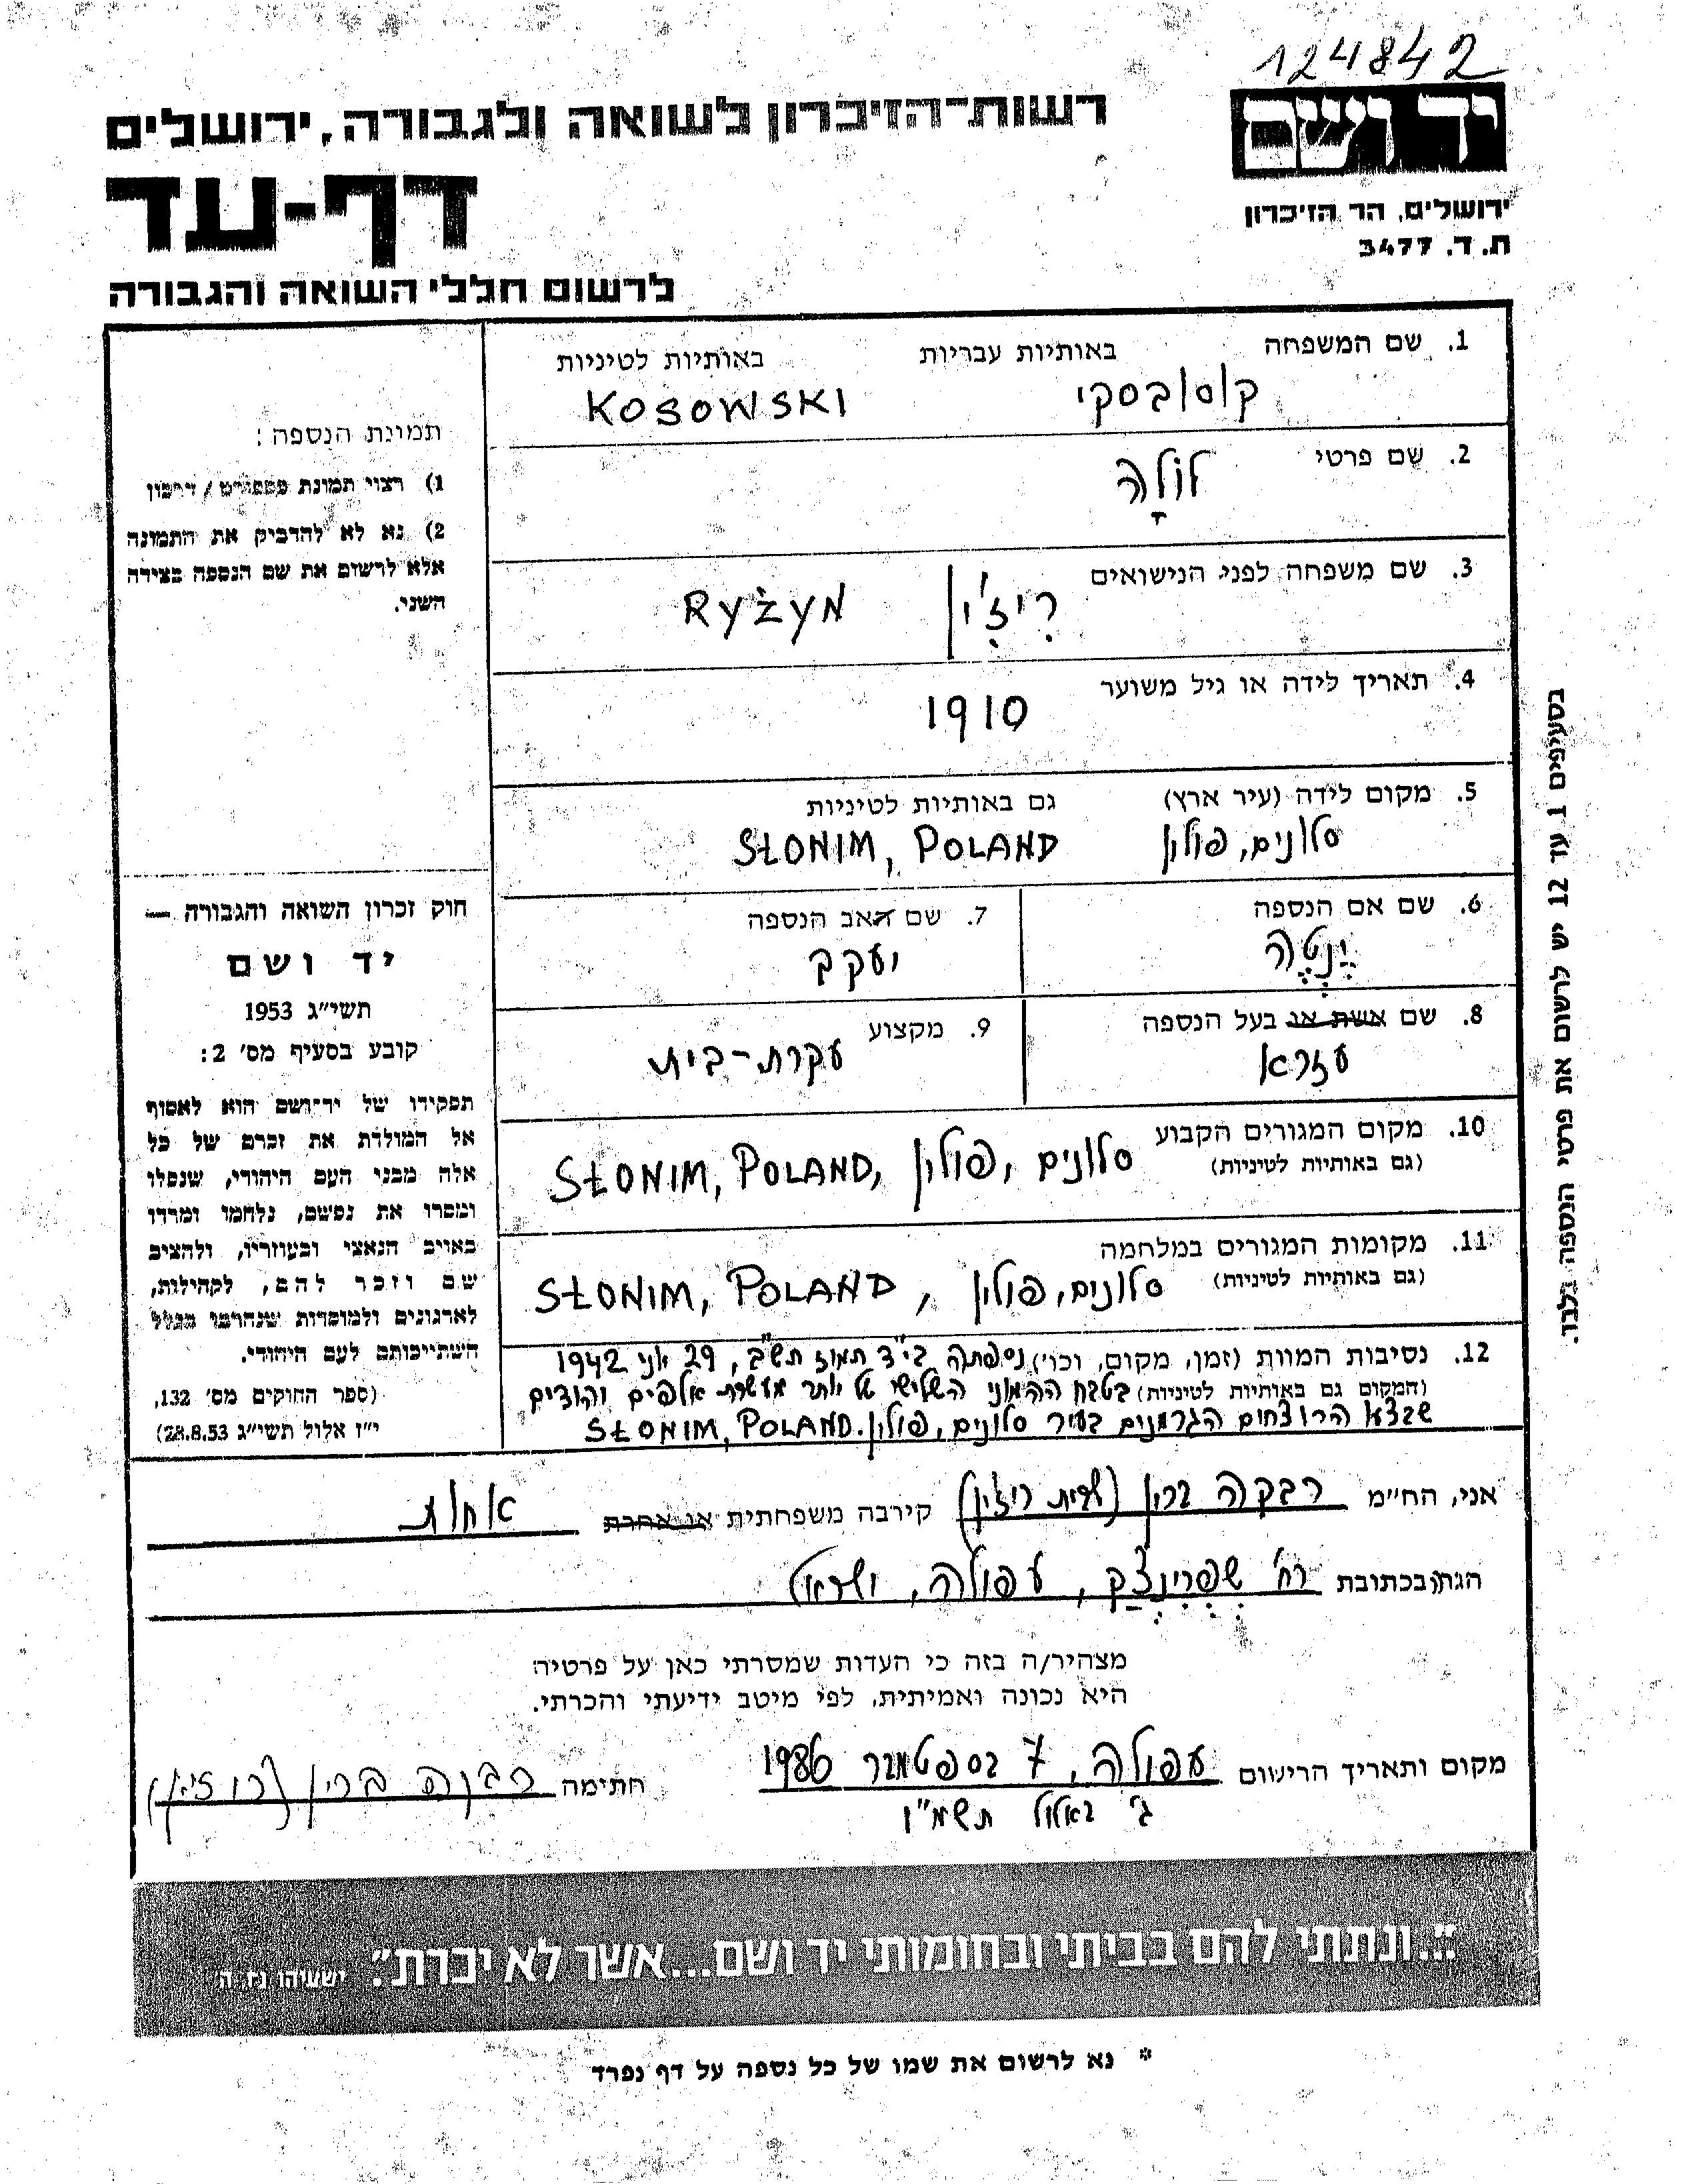 124842
יד ושם
רשות־הזיכרון לשואה ולגבורה, ירושלים
דף-עד
ירושלים, הר הזיכרון
ת. ד. 3477
לרשום חללי השואה והגבורה
1. שם המשפחה באותיות עבריות באותיות לטיניות
קוסובסקי KOSOWSKI
2. שם פרטי
לולָה
3. שם משפחה לפני הנישואים
רִיזִ'ין RYŻYN
4. תאריך לידה או גיל משוער
1910
5. מקום לידה (עיר ארץ) גם באותיות לטיניות
סלונים, פולין SŁONIM, POLAND
6. שם אם הנספה 7. שם האב הנספה
יֶנְטֶה יעקב
8. שם אשת או בעל הנספה 9. מקצוע
עזרא עקרת-בית
10. מקום המגורים הקבוע
(גם באותיות לטיניות) סלונים, פולין, SŁONIM, POLAND
11. מקומות המגורים במלחמה
(גם באותיות לטיניות) סלונים, פולין, SŁONIM, POLAND
12. נסיבות המוות (זמן, מקום, וכו') נספתה בי"ד תמוז תש"ב, 29 יוני 1942
(המקום גם באותיות לטיניות) בטבח ההמוני השלישי של יותר מעשרת אלפים יהודים
שבצעו הרוצחים הגרמנים בעיר סלונים, פולין. SŁONIM, POLAND
תמונת הנספה:
1) רצוי תמונת פספורט / דרכון
2) נא לא להדביק את התמונה
אלא לרשום את שם הנספה בצידה
השני.
חוק זכרון השואה והגבורה —
יד ושם
תשי״ג 1953
קובע בסעיף מס׳ 2:
תפקידו של יד־ושם הוא לאסוף
אל המולדת את זכרם של כל
אלה מבני העם היהודי, שנפלו
ומסרו את נפשם, נלחמו ומרדו
באויב הנאצי ובעוזריו, ולהציב
שם וזכר להם, לקהילות,
לארגונים ולמוסדות שנחרבו בגלל
השתייכותם לעם היהודי.
(ספר החוקים מס׳ 132,
י״ז אלול תשי״ג 28.8.53)
בסעיפים 1 עד 12 יש לרשום את פרטי הנספה בלבד.
אני, הח״מ רבקה ברון (לבית ריזין) קירבה משפחתית או אחרת אחות
הגר/ה בכתובת רח' שְׁפְּרִינְצַק, עפולה, ישראל
מצהיר/ה בזה כי העדות שמסרתי כאן על פרטיה
היא נכונה ואמיתית, לפי מיטב ידיעתי והכרתי.
מקום ותאריך הרישום עפולה, 7 בספטמבר 1986 חתימה רבקה ברון (ריזין)
ג' באלול תשמ"ו
״...ונתתי להם בביתי ובחומותי יד ושם...אשר לא יכרת״. ישעיהו נו ה
* נא לרשום את שמו של כל נספה על דף נפרד